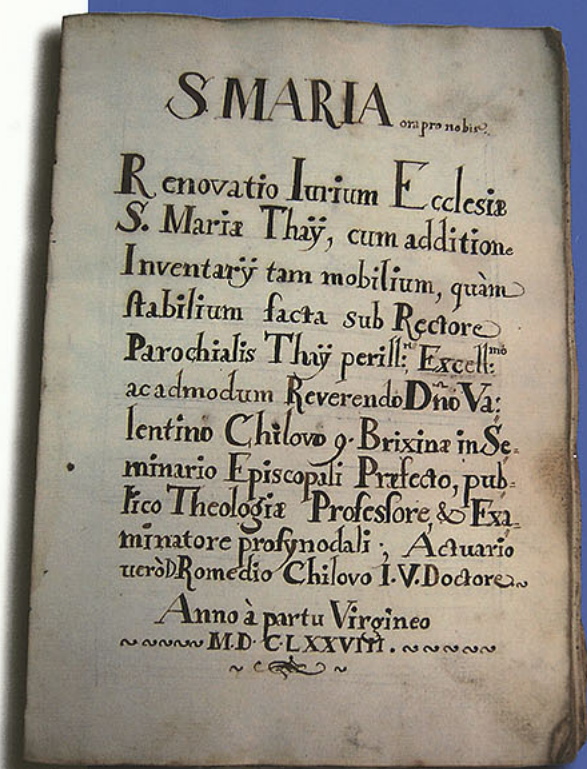 S. MARIA ora pro nobis.
Renovatio Iurium Ecclesiæ
S. Mariæ Thaÿ, cum additione
Inventarÿ tam mobilium, quàm
ſtabilium facta sub Rectore
Parochialis Thaÿ perill: Excell:mo
ac admodum Reverendo Dño Va:
lentino Chilovo 9. Brixinæ in Se:
minario Episcopali Præfecto, pub:
lico Theologiæ Profeſsore, & Exa:
minatore proſynodali; Actuario
verò D Romedio Chilovo I.V. Doctore
Anno à partu Virgineo
M.D.C.LXXVIII.